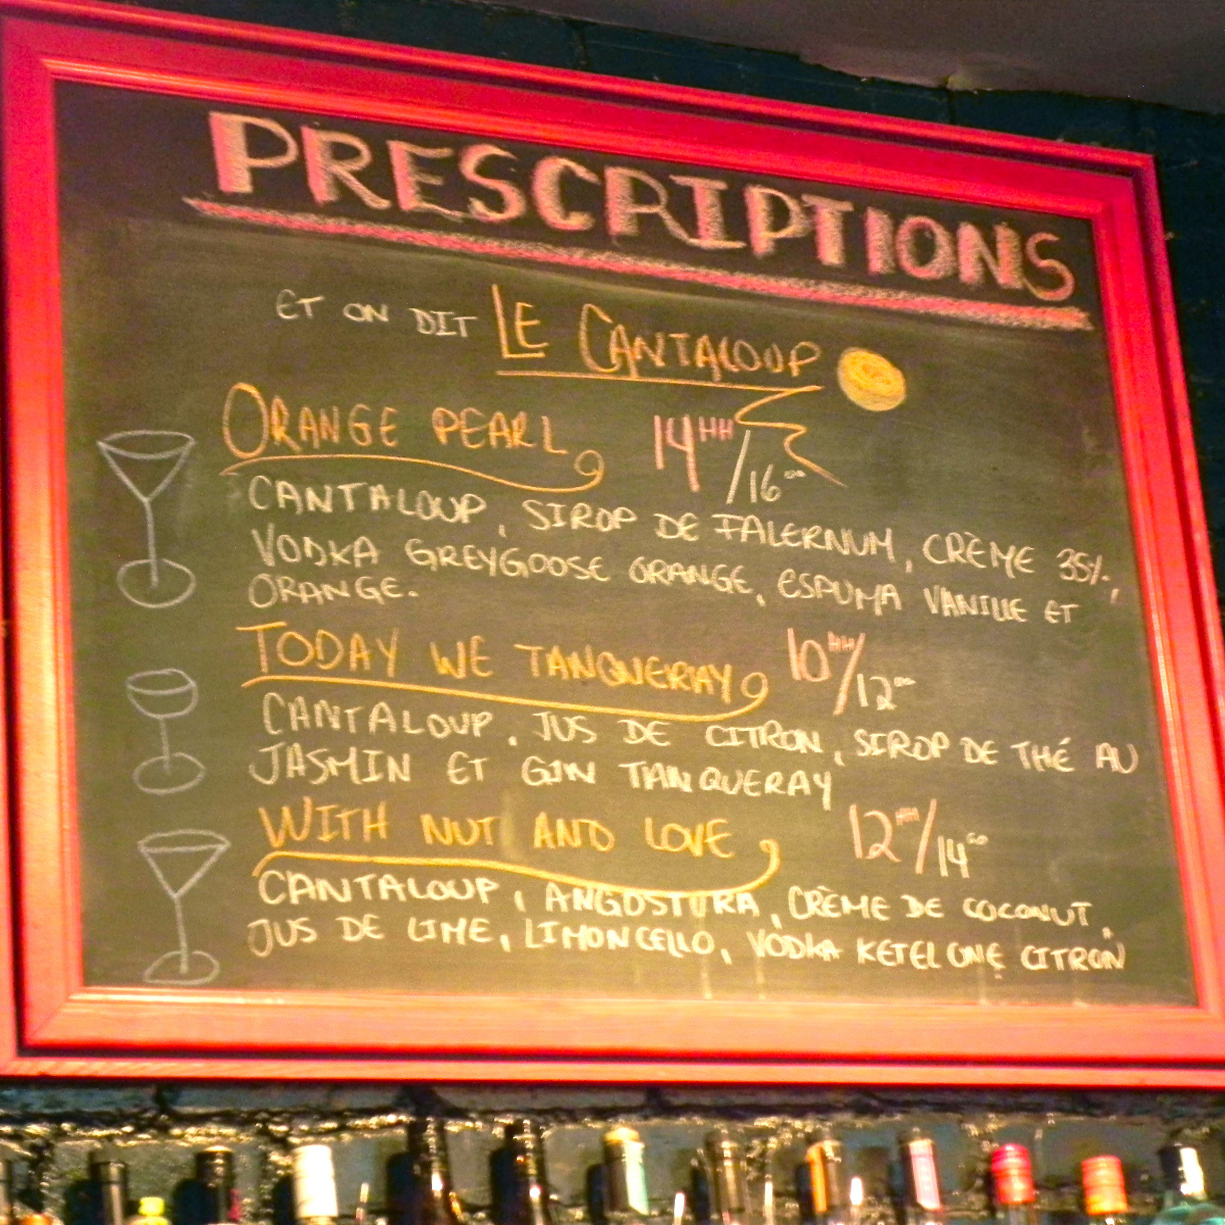 PRESCRIPTIONS
ET ON DIT LE CANTALOUP
ORANGE PEARL 14HH/16.00
CANTALOUP, SIROP DE FALERNUM, CRÈME 35%,
VODKA GREYGOOSE ORANGE, ESPUMA VANILLE ET
ORANGE.
TODAY WE TANQUERAY 10HH/12.00
CANTALOUP, JUS DE CITRON, SIROP DE THÉ AU
JASMIN ET GIN TANQUERAY
WITH NUT AND LOVE 12HH/14.00
CANTALOUP, ANGOSTURA, CRÈME DE COCONUT,
JUS DE LIME, LIMONCELLO, VODKA KETEL ONE CITRON